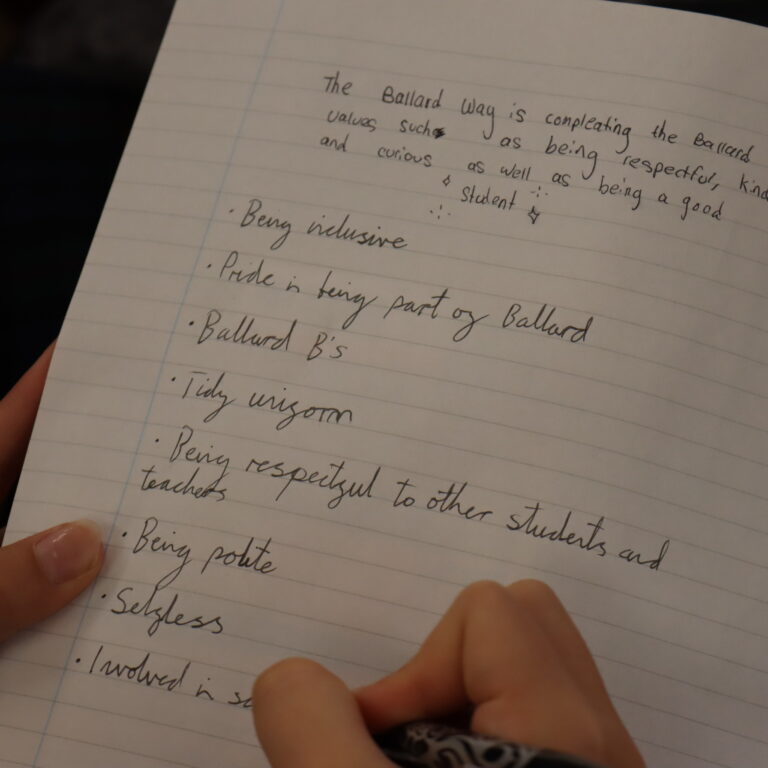 The Ballard Way is compleating the Ballard
values such as being respectful, kind
and curious as well as being a good
student
· Being inclusive
· Pride in being part of Ballard
· Ballard B's
· Tidy uniform
· Being respectful to other students and
teachers
· Being polite
· Selfless
· Involved in